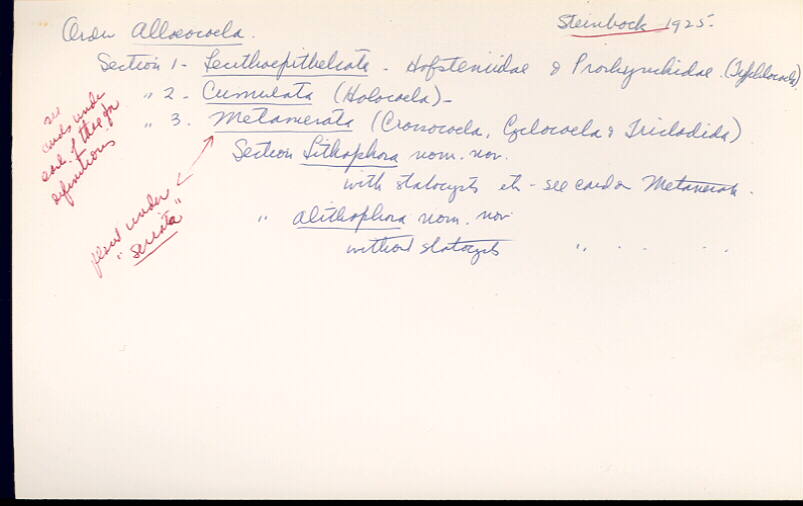 Order Alloeocoela. Steinbock 1925.
Section 1 - Lecithoepitheliata - Hofsteniidae & Prorhynchidae (Typhlocoela)
" 2 - Cumulata (Holocoela) -
" 3. Metamerata (Crossocoela, Cyclocoela & Tricladida)
Section Lithophora nom. nov.
with statocysts etc - see card on Metamerata.
" Alithophora nom. nov.
without statocysts " . . .
see
cards under
each of these for
definitions
filed under
"Seriata"